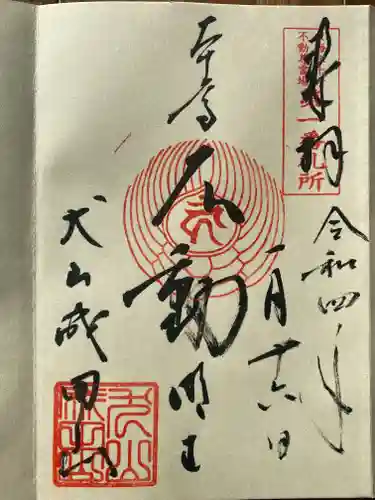 奉拝
不動尊霊場
第一番札所
令和四年
一月十六日
本尊
不動明王
犬山成田山